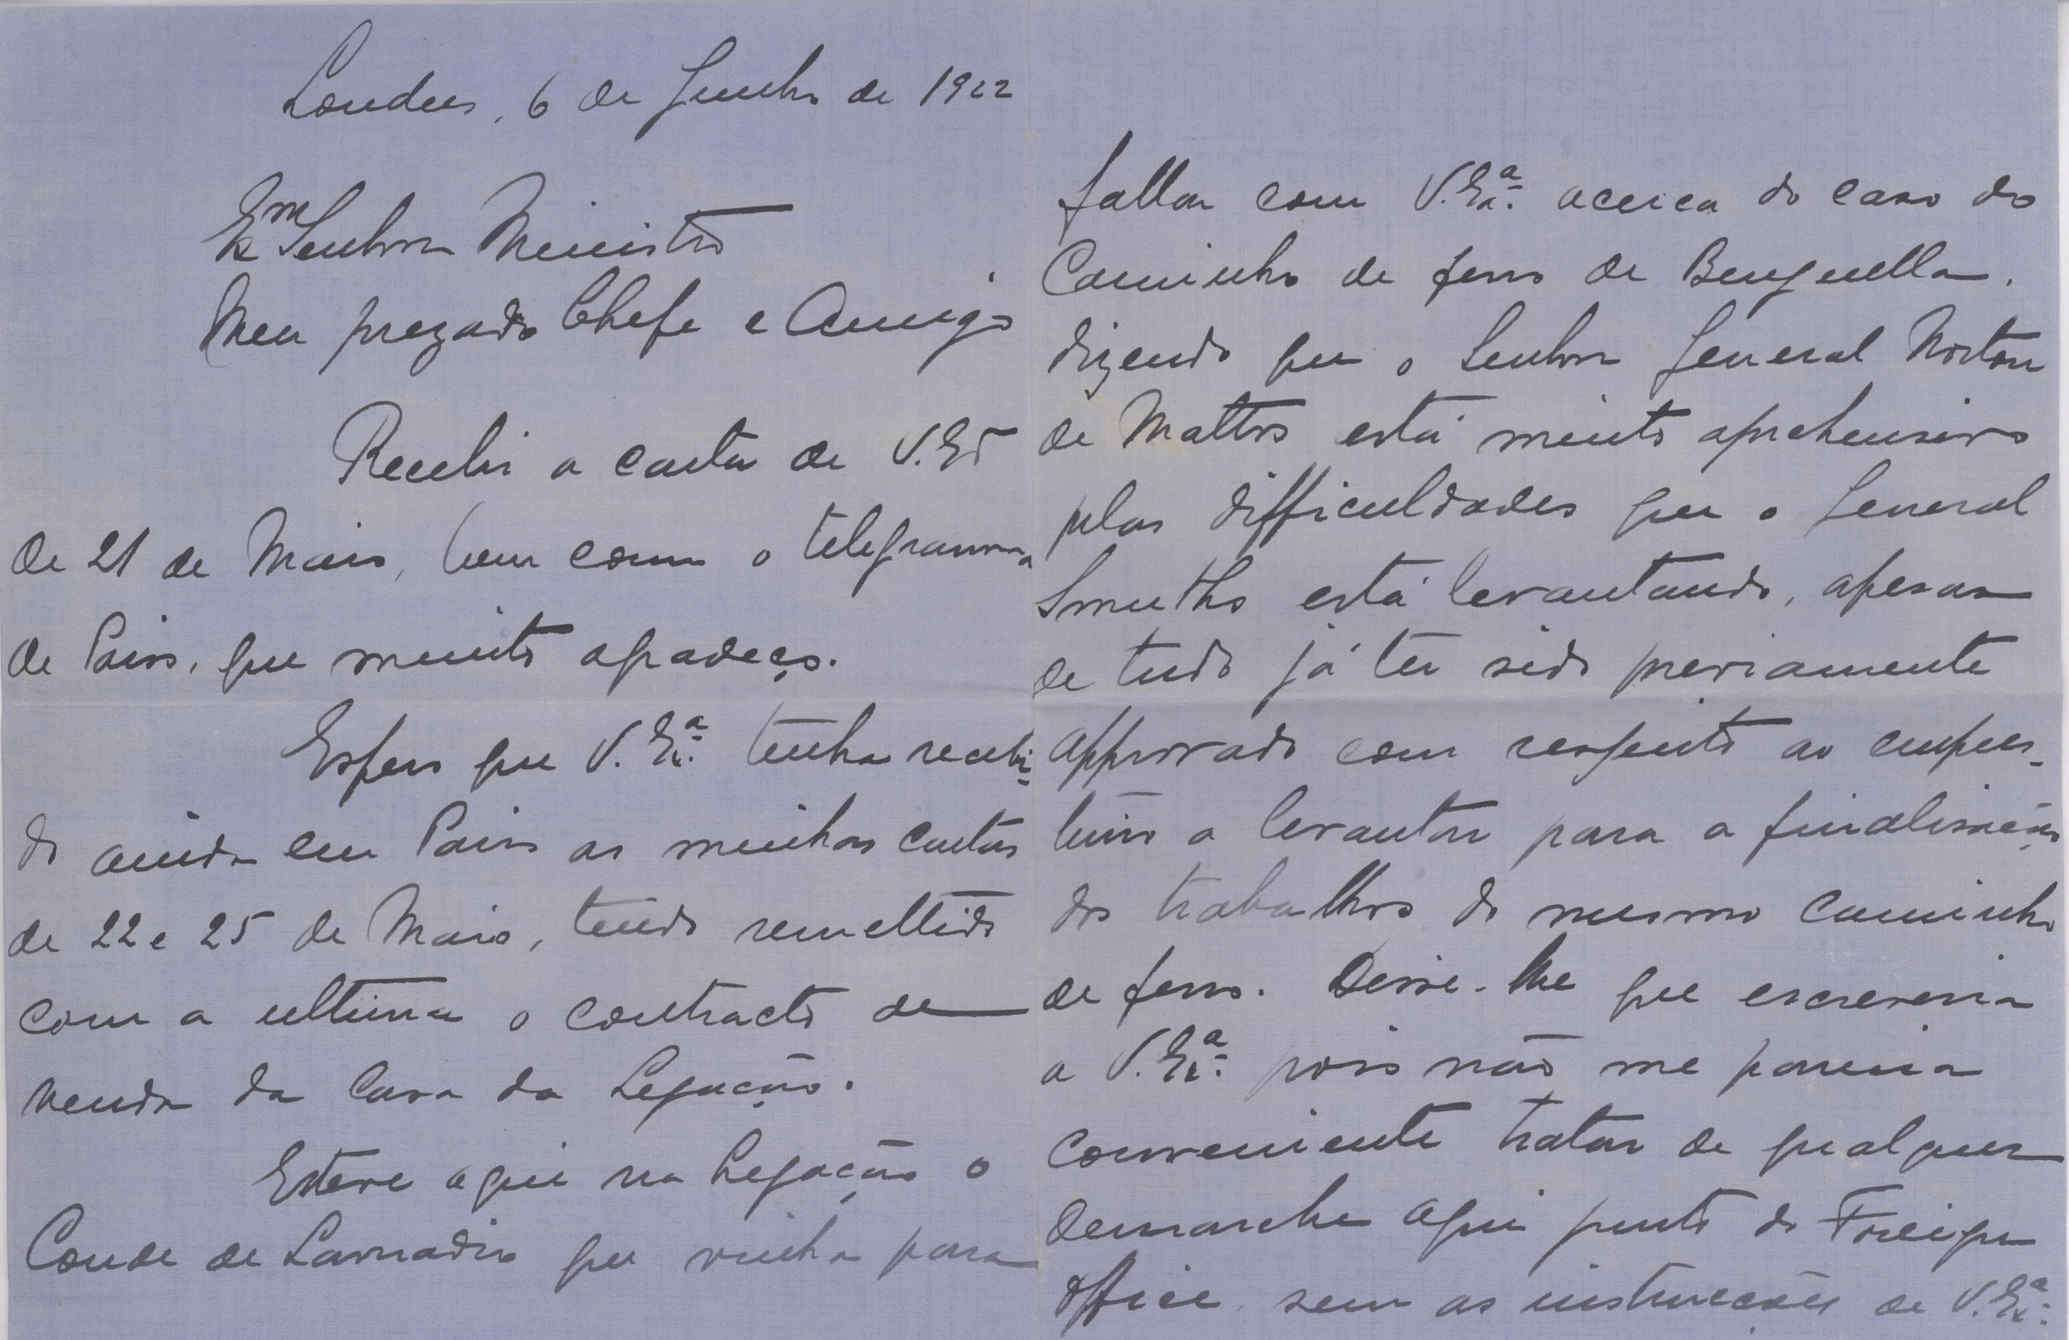 Londres, 6 de Junho de 1922
Exmo Senhor Ministro
Meu prezado Chefe e Amigo
Recebi a carta de V. Exª
de 21 de Maio, bem como o telegramma
de Paris, que muito agradeço.
Espero que V. Exª tenha recebi-
do ainda em Paris as minhas cartas
de 22 e 25 de Maio, tendo remettido
com a ultima o contracto de
venda da Casa da Legação.
Esteve aqui na Legação o
Conde de Lavradio que vinha para
fallar com V. Exª acerca do caso do
Caminho de ferro de Benguella.
dizendo que o Senhor General Norton
de Mattos está muito aprehensivo
pelas difficuldades que o General
Smuths está levantando, apesar
de tudo já ter sido previamente
approvado com respeito ao empres-
timo a levantar para a finalisação
dos trabalhos do mesmo caminho
de ferro. Disse-lhe que escreveria
a V. Exª pois não me parecia
conveniente tratar de qualquer
demarche aqui junto do Foreign
Office sem as instrucções de V. Exª